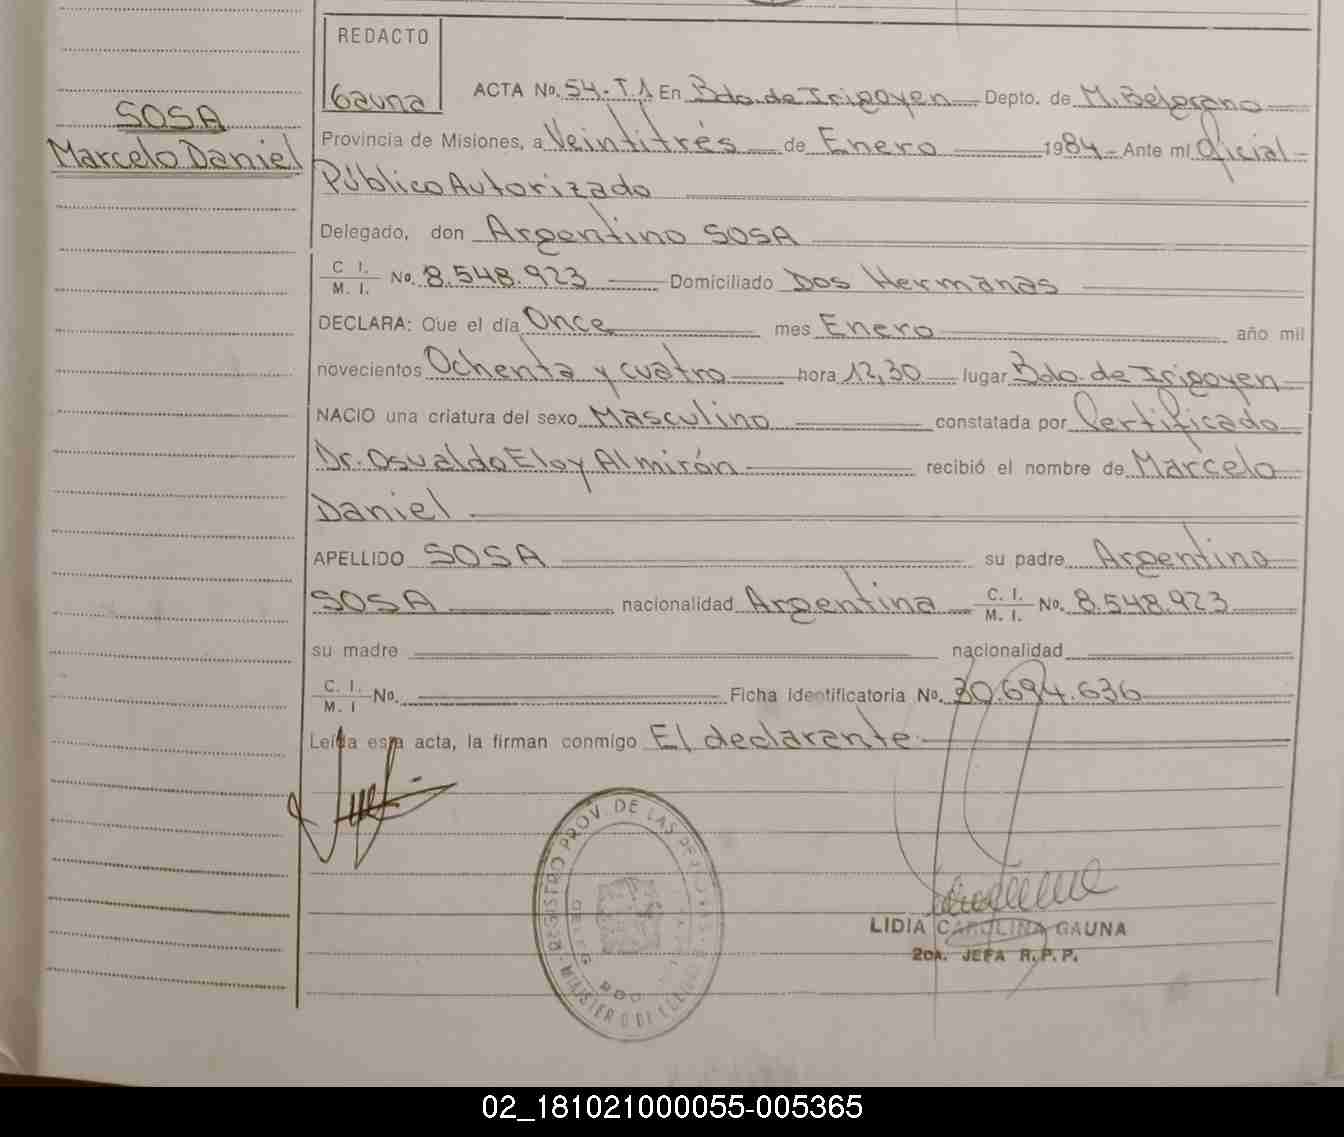 REDACTO
Gauna
SOSA
Marcelo Daniel
ACTA No. 54-T.1 En Bdo. de Irigoyen Depto. de M. Belgrano
Provincia de Misiones, a Veintitrés de Enero 1984 - Ante mí Oficial
Público Autorizado
Delegado, don Argentino SOSA
C. I.
M. I. No. 8.548.923 Domiciliado Dos Hermanas
DECLARA: Que el día Once mes Enero año mil
novecientos Ochenta y cuatro hora 12,30 lugar Bdo. de Irigoyen
NACIO una criatura del sexo Masculino constatada por Certificado
Dr. Osvaldo Eloy Almirón recibió el nombre de Marcelo
Daniel
APELLIDO SOSA su padre Argentino
SOSA nacionalidad Argentina C. I. M. I. No. 8.548.923
su madre nacionalidad
C. I.
M. I No. Ficha identificatoria No. 30.694.636
Leída esta acta, la firman conmigo El declarante
REGISTRO PROV. DE LAS PERSONAS
LIDIA CAROLINA GAUNA
2DA. JEFA R.P.P.
02_181021000055-005365